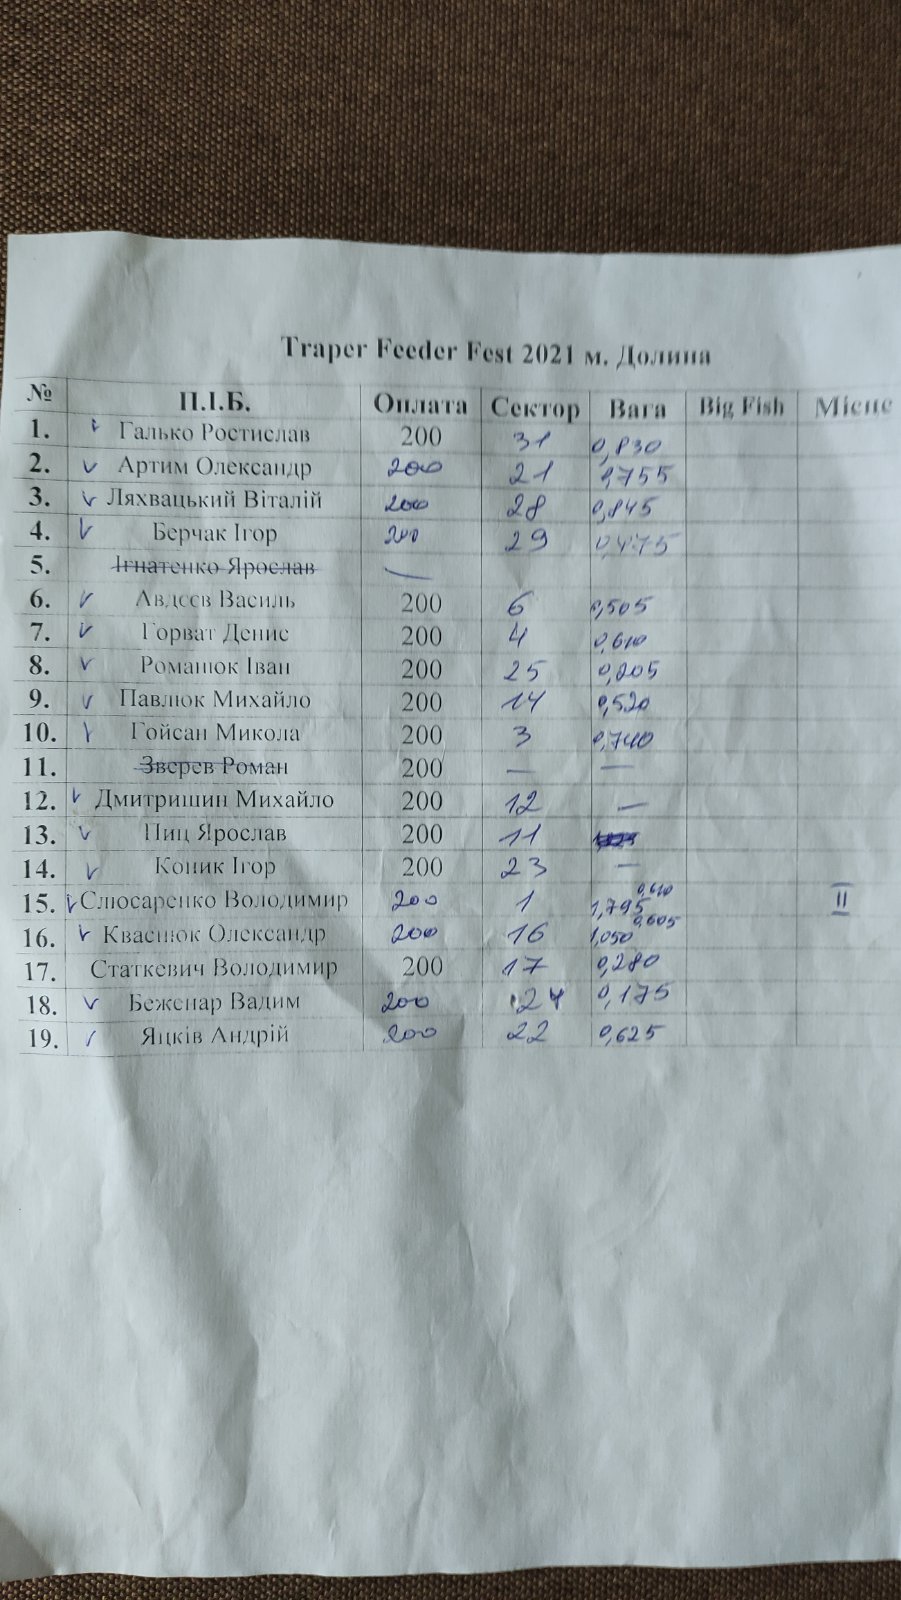 Traper Feeder Fest 2021 м. Долина
№ П.І.Б. Оплата Сектор Вага Big Fish Місце
1. Галько Ростислав 200 31 0,830
2. Артим Олександр 200 21 0,755
3. Ляхвацький Віталій 200 28 0,845
4. Берчак Ігор 200 29 0,475
5. Ігнатенко Ярослав —
6. Авдєєв Василь 200 6 0,505
7. Горват Денис 200 4 0,610
8. Романюк Іван 200 25 0,205
9. Павлюк Михайло 200 14 0,520
10. Гойсан Микола 200 3 0,740
11. Зверев Роман 200 — —
12. Дмитришин Михайло 200 12 —
13. Пиц Ярослав 200 11
14. Коник Ігор 200 23 —
15. Слюсаренко Володимир 200 1 1,795 0,610 II
16. Кваснюк Олександр 200 16 1,050 0,605
17. Статкевич Володимир 200 17 0,280
18. Беженар Вадим 200 24 0,175
19. Яцків Андрій 200 22 0,625